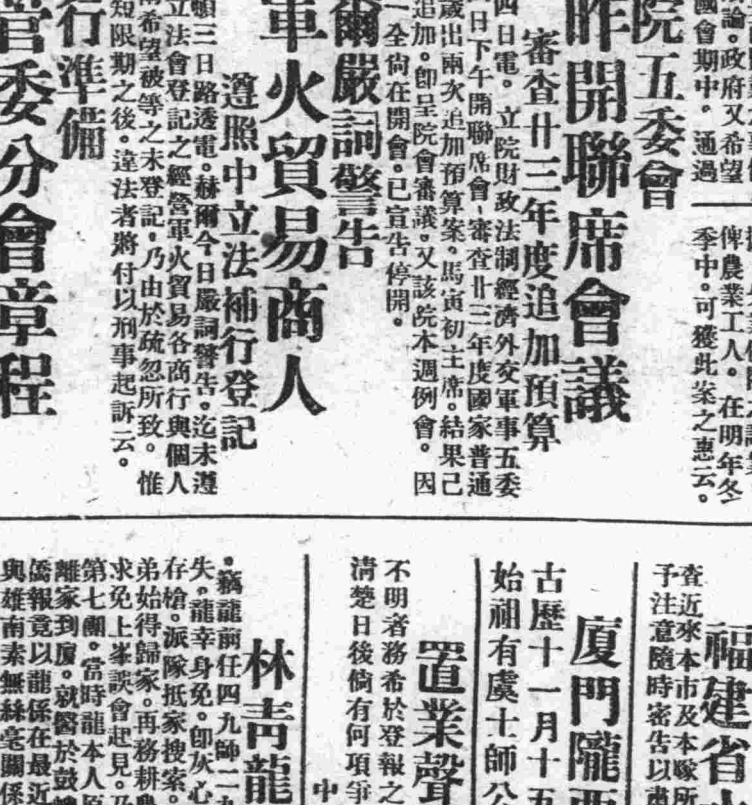 國會期中。通過
論。政府又希望
季中。可獲此案之惠云。
俾農業工人。在明年冬
院五委會
昨開聯席會議
審查廿三年度追加預算
四日電。立院財政法制經濟外交軍事五委
日下午開聯席會、審查廿三年度國家普通
歲出兩次追加預算案。馬寅初主席。結果已
追加。卽呈院會審議。又該院本週例會。因
全尙在開會。已宣告停開。
爾嚴詞警告
軍火貿易商人
遵照中立法補行登記
頓三日路透電。赫爾今日嚴詞警告。迄未遵
立法會登記之經營軍火貿易各商行與個人
希望破等之未登記。乃由於疏忽所致。惟
短限期之後。違法者將付以刑事起訴云。
行準備
官委分會章程
福建省
查近來本市及本
予注意隨時密告以
廈門隴
古歷十一月十五
始祖有虞十師公
置業聲
不明者務希於登報之
淸楚日後倘有何項爭
中
林靑龍
竊龍前任四九師二
失。龍幸身免。卽灰心
存槍。派隊抵家搜索。
弟始得歸家。再務耕
求免上峯誤會起見。乃
第七團。當時龍本人
離家到廈。就醫於鼓
僑報竟以龍係在最近
與雄南素無絲毫關係